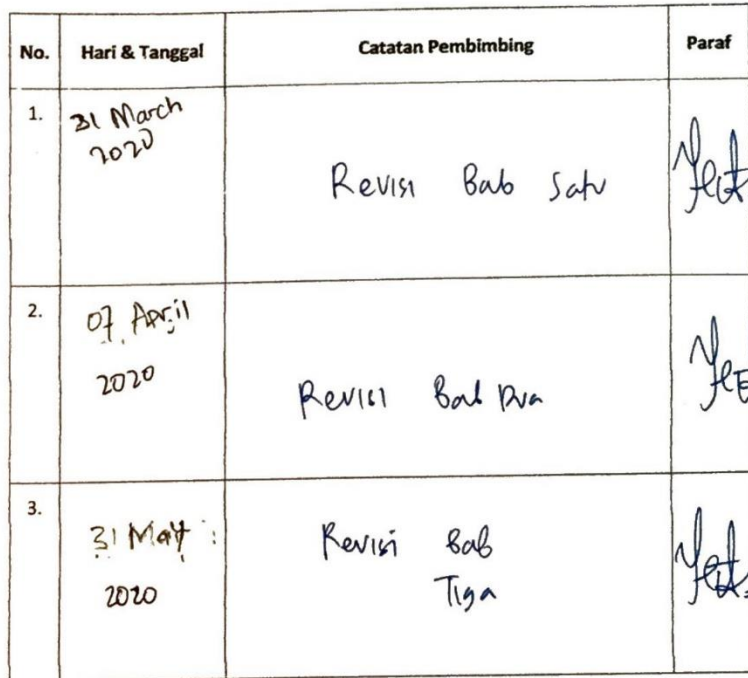 No. Hari & Tanggal Catatan Pembimbing Paraf
1. 31 March
2020
Revisi Bab Satu
2. 07 April
2020
Revisi Bab Dua
3. 31 May
2020
Revisi Bab
Tiga